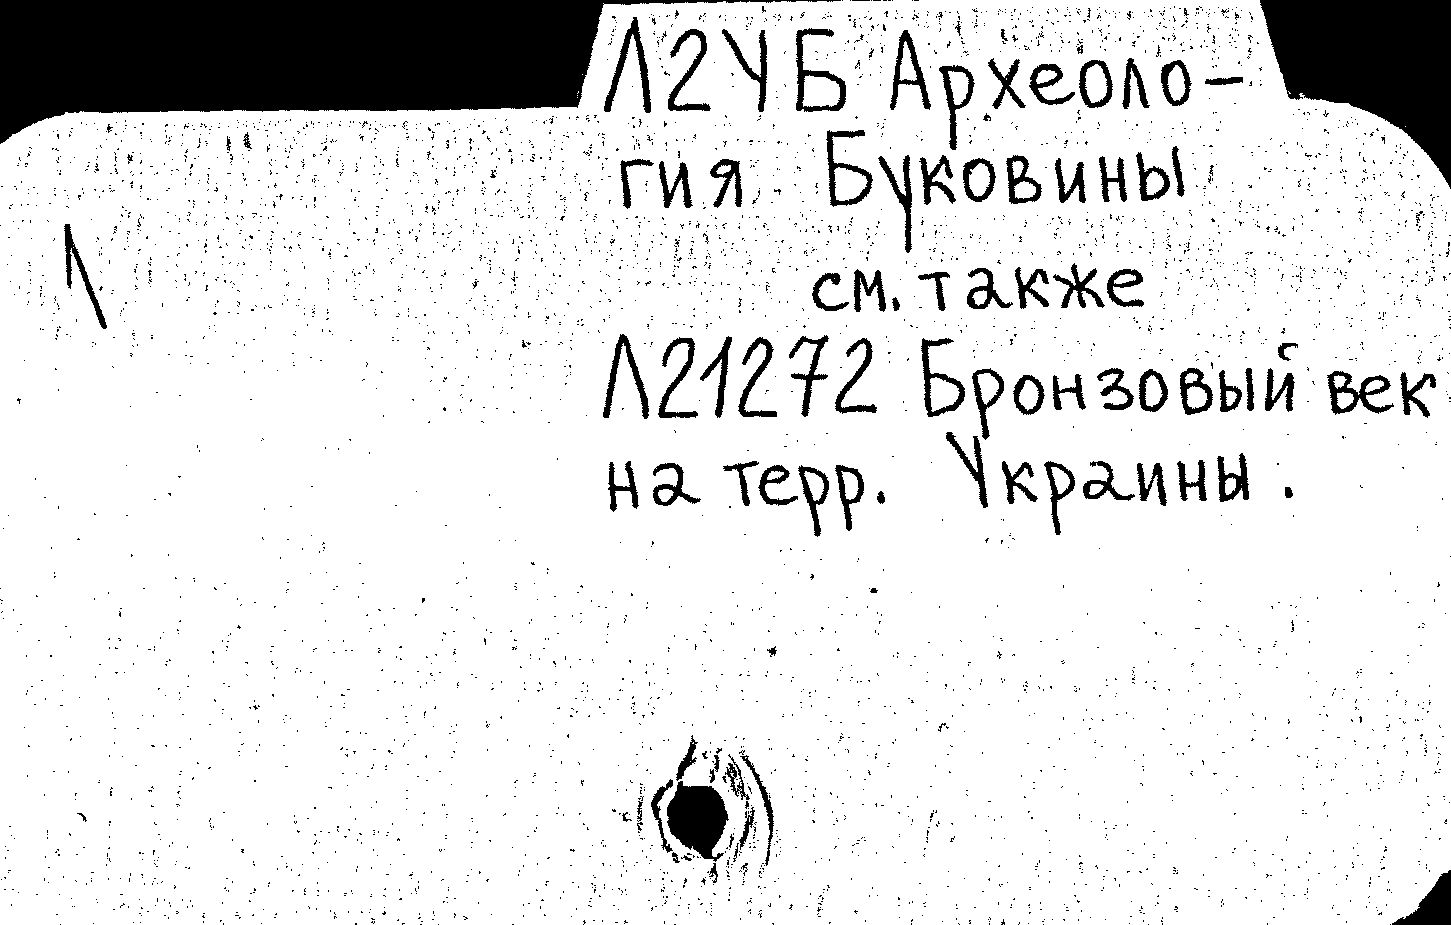 Л2УБ Археоло-
гия Буковины
см. также
Л21272 Бронзовый век
на терр. Украины.